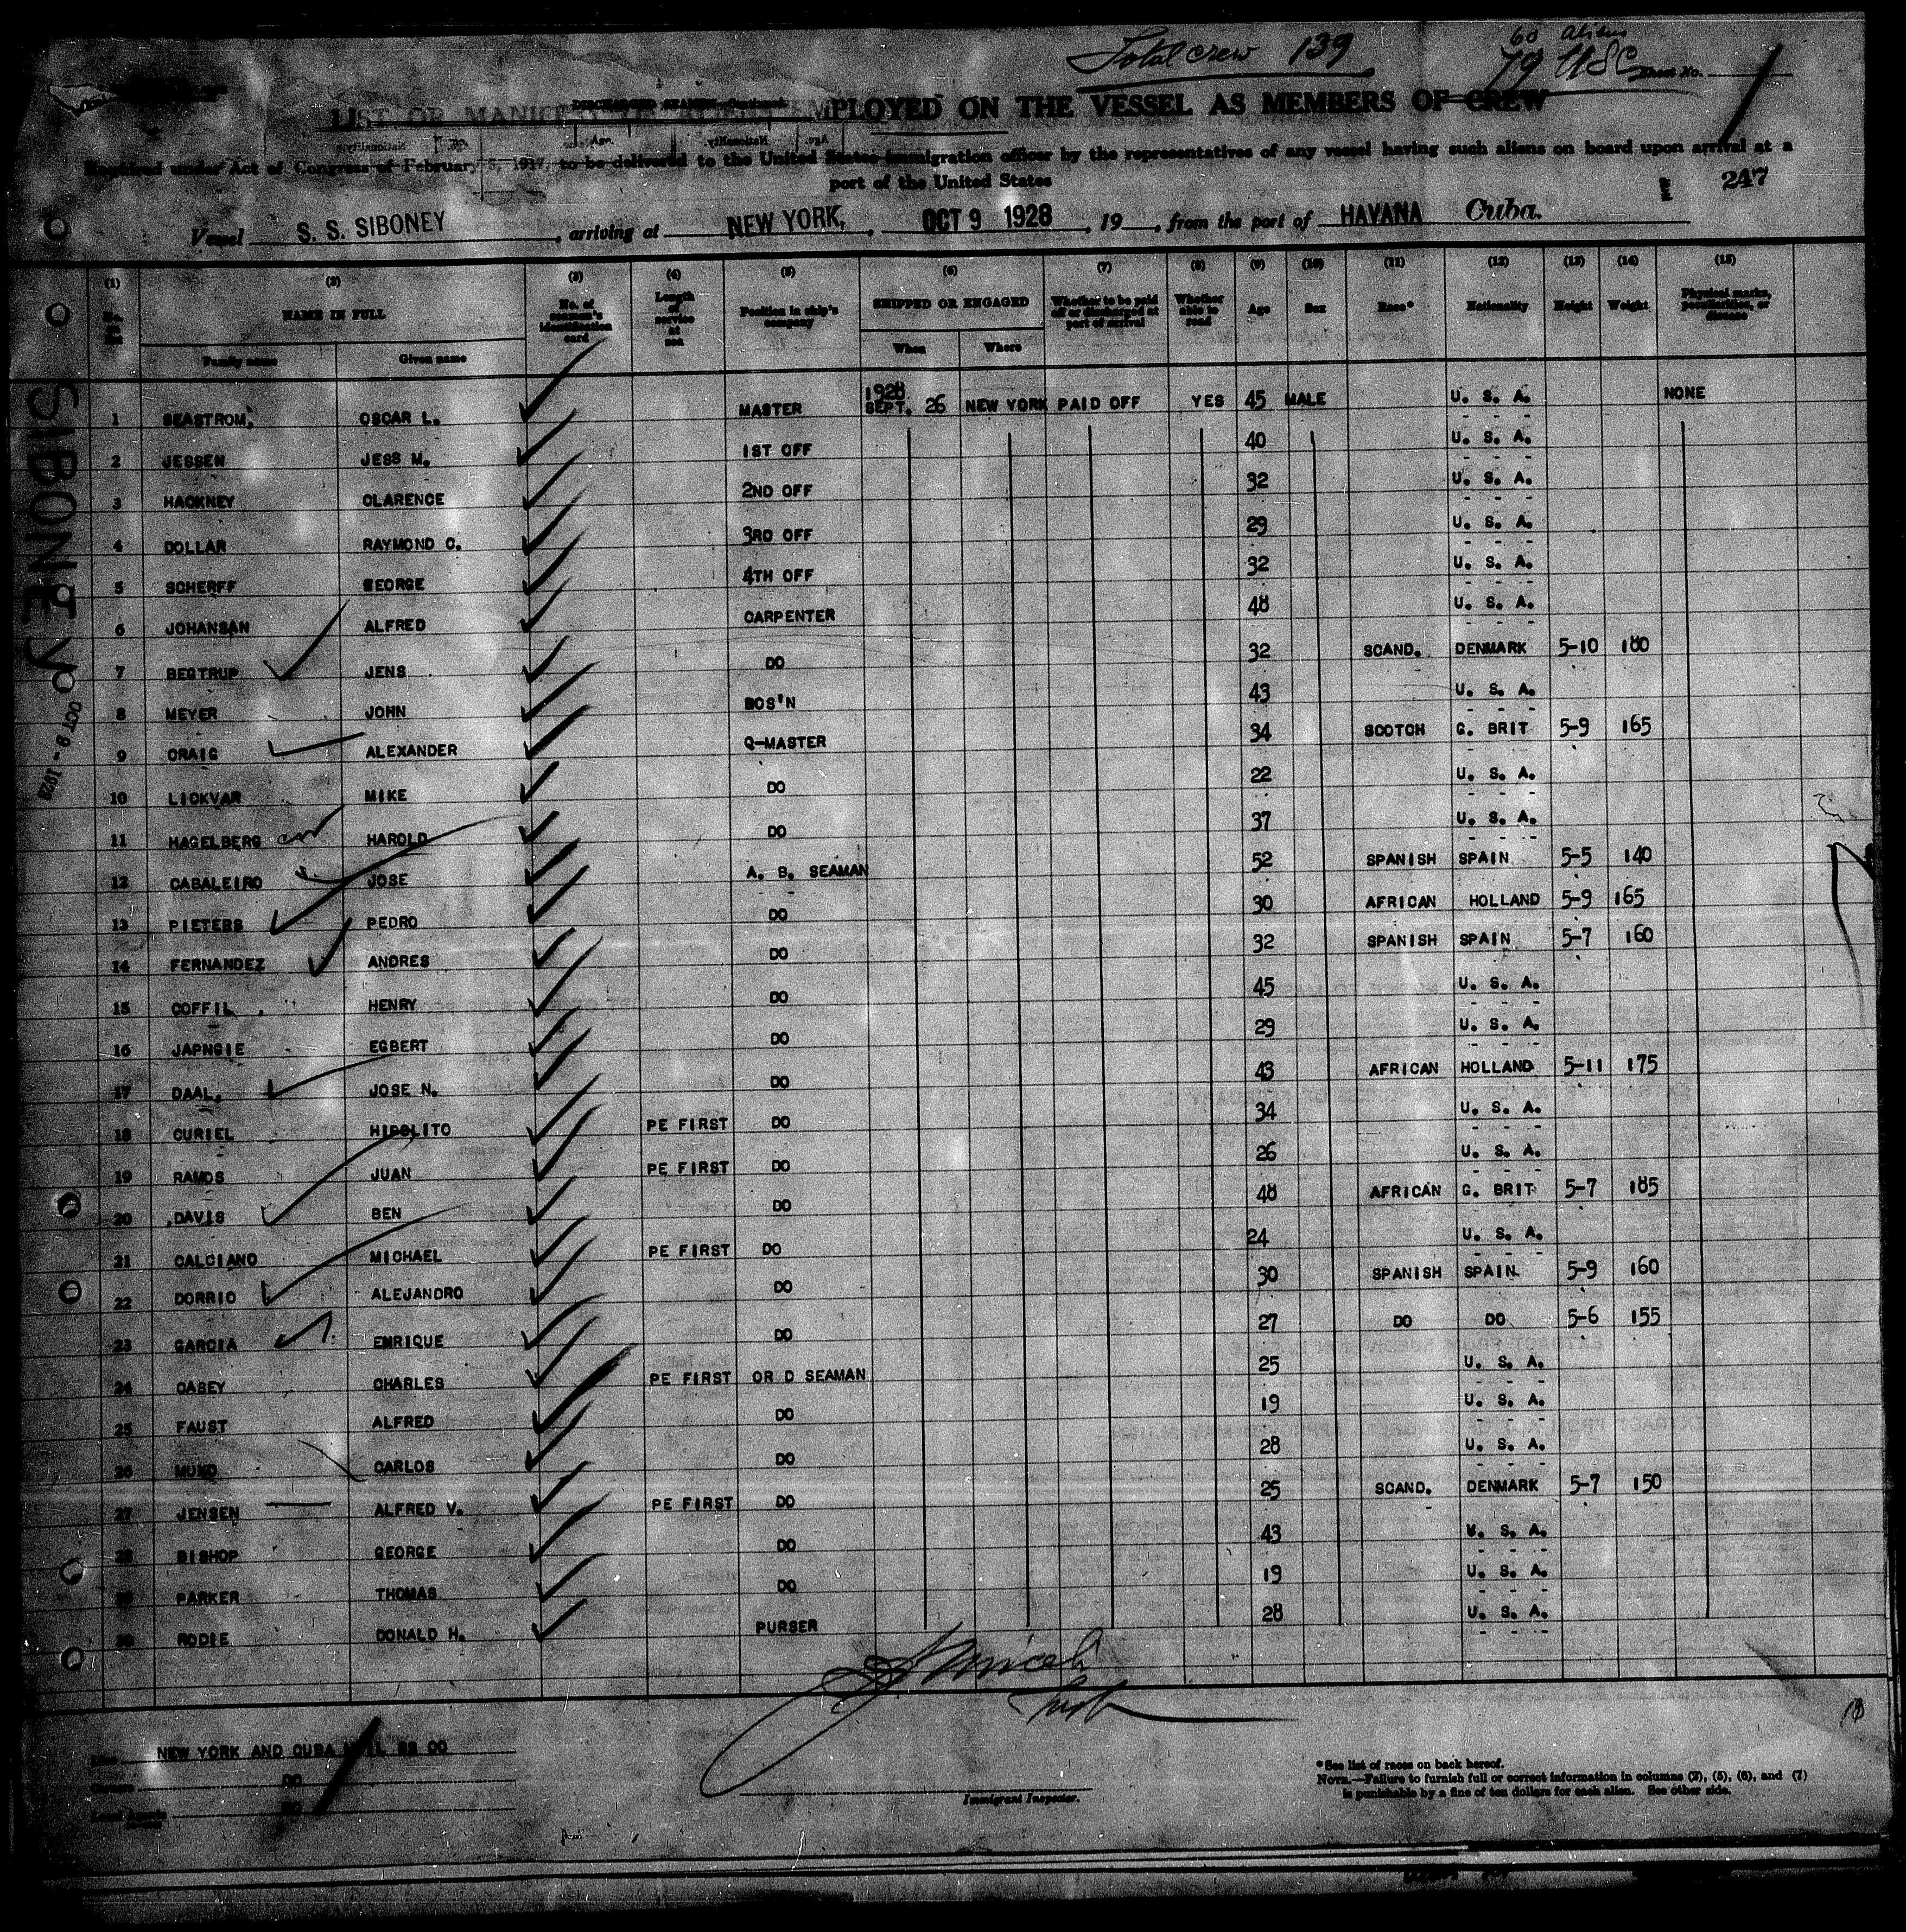 Total crew 139
60 aliens
79 USC Sheet No.
LIST OR MANIFEST OF ALIENS EMPLOYED ON THE VESSEL AS MEMBERS OF CREW
Required under Act of Congress of February 5, 1917, to be delivered to the United States immigration officer by the representatives of any vessel having such aliens on board upon arrival at a
port of the United States
247
Vessel S. S. SIBONEY, arriving at NEW YORK, OCT 9 1928, 19 , from the port of HAVANA Cuba.
(1) (2) (3) (4) (5) (6) (7) (8) (9) (10) (11) (12) (13) (14) (15)
No. on list NAME IN FULL Family name Given name No. of seaman's identification card Length of service at sea Position in ship's company SHIPPED OR ENGAGED When Where Whether to be paid off or discharged at port of arrival Whether able to read Age Sex Race* Nationality Height Weight Physical marks, peculiarities, or disease
1 SEASTROM, OSCAR L. MASTER 1928 SEPT. 26 NEW YORK PAID OFF YES 45 MALE U. S. A. NONE
2 JESSEN JESS M. 1ST OFF 40 U. S. A.
3 HACKNEY CLARENCE 2ND OFF 32 U. S. A.
4 DOLLAR RAYMOND C. 3RD OFF 29 U. S. A.
5 SCHERFF GEORGE 4TH OFF 32 U. S. A.
6 JOHANSAN ALFRED CARPENTER 48 U. S. A.
7 BEGTRUP JENS DO 32 SCAND. DENMARK 5-10 180
8 MEYER JOHN BOS'N 43 U. S. A.
9 CRAIG ALEXANDER Q-MASTER 34 SCOTCH G. BRIT 5-9 165
10 LICKVAR MIKE DO 22 U. S. A.
11 HAGELBERG HAROLD DO 37 U. S. A.
12 CABALEIRO JOSE A. B. SEAMAN 52 SPANISH SPAIN 5-5 140
13 PIETERS PEDRO DO 30 AFRICAN HOLLAND 5-9 165
14 FERNANDEZ ANDRES DO 32 SPANISH SPAIN 5-7 160
15 COFFIL HENRY DO 45 U. S. A.
16 JAPNGIE EGBERT DO 29 U. S. A.
17 DAAL, JOSE N. DO 43 AFRICAN HOLLAND 5-11 175
18 CURIEL HIPOLITO PE FIRST DO 34 U. S. A.
19 RAMOS JUAN PE FIRST DO 26 U. S. A.
20 DAVIS BEN DO 48 AFRICAN G. BRIT 5-7 185
21 CALCIANO MICHAEL PE FIRST DO 24 U. S. A.
22 DORRIO ALEJANDRO DO 30 SPANISH SPAIN 5-9 160
23 GARCIA ENRIQUE DO 27 DO DO 5-6 155
24 CASEY CHARLES PE FIRST OR D SEAMAN 25 U. S. A.
25 FAUST ALFRED DO 19 U. S. A.
26 CARLOS DO 28 U. S. A.
27 JENSEN ALFRED V. PE FIRST DO 25 SCAND. DENMARK 5-7 150
28 BISHOP GEORGE DO 43 U. S. A.
29 PARKER THOMAS DO 19 U. S. A.
30 RODIE DONALD H. PURSER 28 U. S. A.
SIBONEY
OCT 9 - 1928
NEW YORK AND CUBA MAIL SS CO
Owners DO
Local Agents DO
Immigrant Inspector.
*See list of races on back hereof.
NOTE.—Failure to furnish full or correct information in columns (2), (5), (6), and (7)
is punishable by a fine of ten dollars for each alien. See other side.